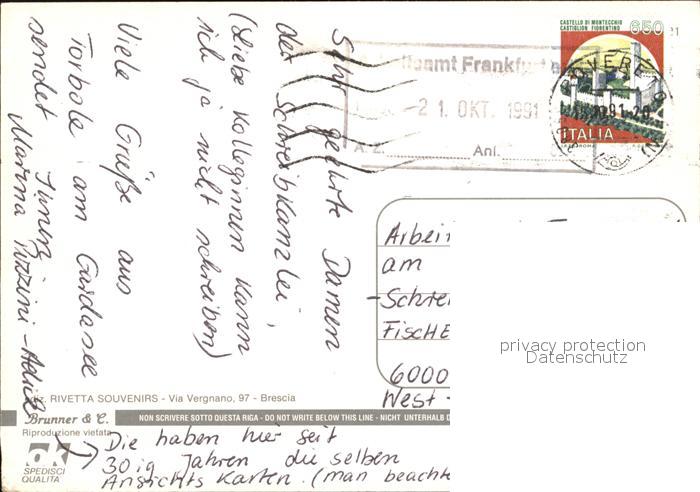 Sehr geehrte Damen
der Schreibkanzlei,
(Liebe Kolleginnen kann
ich ja nicht schreiben)
Viele Grüße aus
Torbole am Gardasee
sendet Ihnen
Marina
CASTELLO DI MONTECCHIO
CASTIGLION FIORENTINO
650
ITALIA
Frankfurt
-2 1. OKT. 1991
Anl.
Arbei
am
-Schre
FiscHE
6000
West -
privacy protection
Datenschutz
RIVETTA SOUVENIRS - Via Vergnano, 97 - Brescia
Brunner & C.
NON SCRIVERE SOTTO QUESTA RIGA - DO NOT WRITE BELOW THIS LINE - NICHT UNTERHALB D
Riproduzione vietata
ok
SPEDISCI
QUALITÀ
Die haben hier seit
30ig Jahren die selben
Ansichts Karten. (man beachte